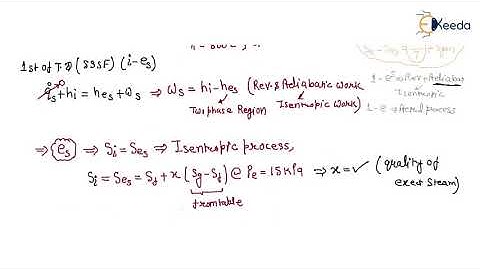 Ekeeda
1st of T.D (SSSF) (i-es)
q̇s + hi = hes + ωs ⇒ ωs = hi - hes (Rev. & Adiabatic work
Two phase Region Isentropic work)
1-es Rev + Adiabatic
Isentropic
1-e → Actual process
⇒ es ⇒ Si = Ses ⇒ Isentropic process,
Si = Ses = Sf + x (Sg - Sf) @ Pe = 15 kPa ⇒ x = ✓ (quality of
exit steam)
from table